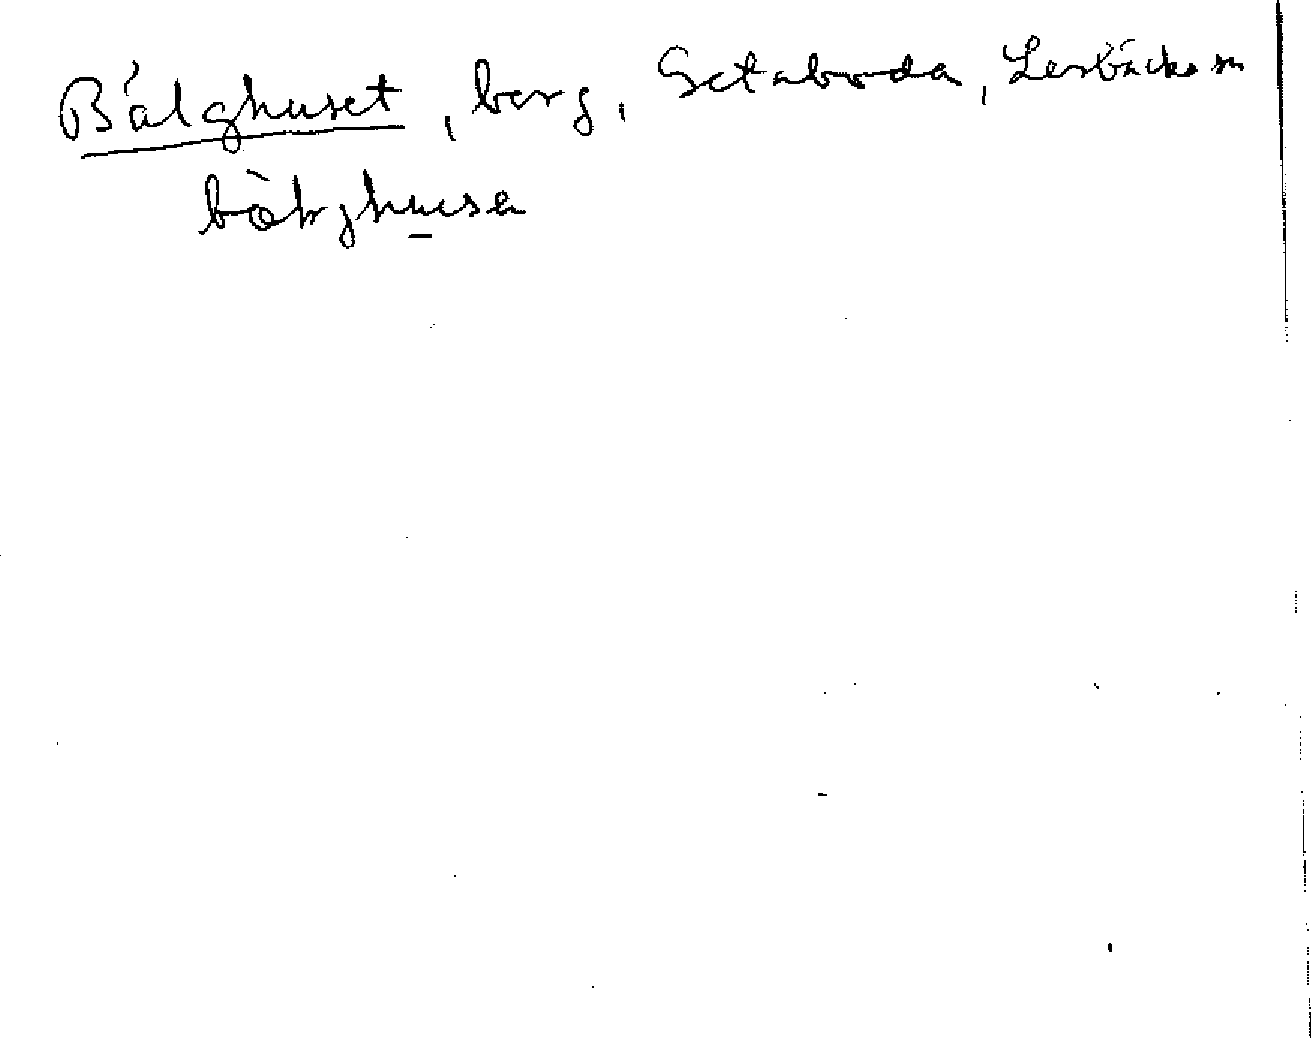 Bålghuset, berg, Getaboda, Lenbäcks sn
bålghusa